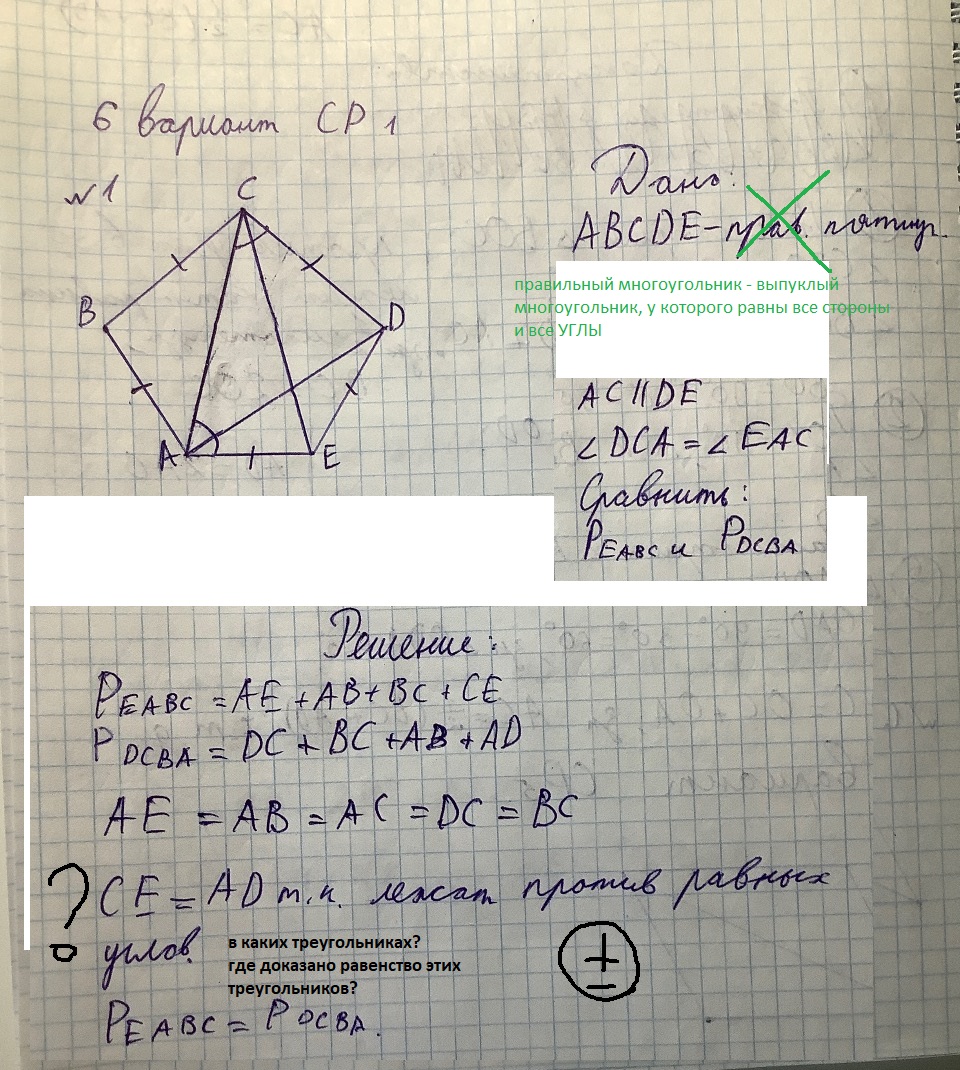 6 вариант СР 1
№1
C
B
D
A
E
Дано:
ABCDE – прав. пятиуг.
правильный многоугольник - выпуклый
многоугольник, у которого равны все стороны
и все УГЛЫ
AC || DE
∠DCA = ∠EAC
Сравнить:
PEABC и PDCBA
Решение:
PEABC = AE + AB + BC + CE
PDCBA = DC + BC + AB + AD
AE = AB = AC = DC = BC
? CE = AD т.к. лежат против равных
углов.
в каких треугольниках?
где доказано равенство этих
треугольников?
±
PEABC = PDCBA.